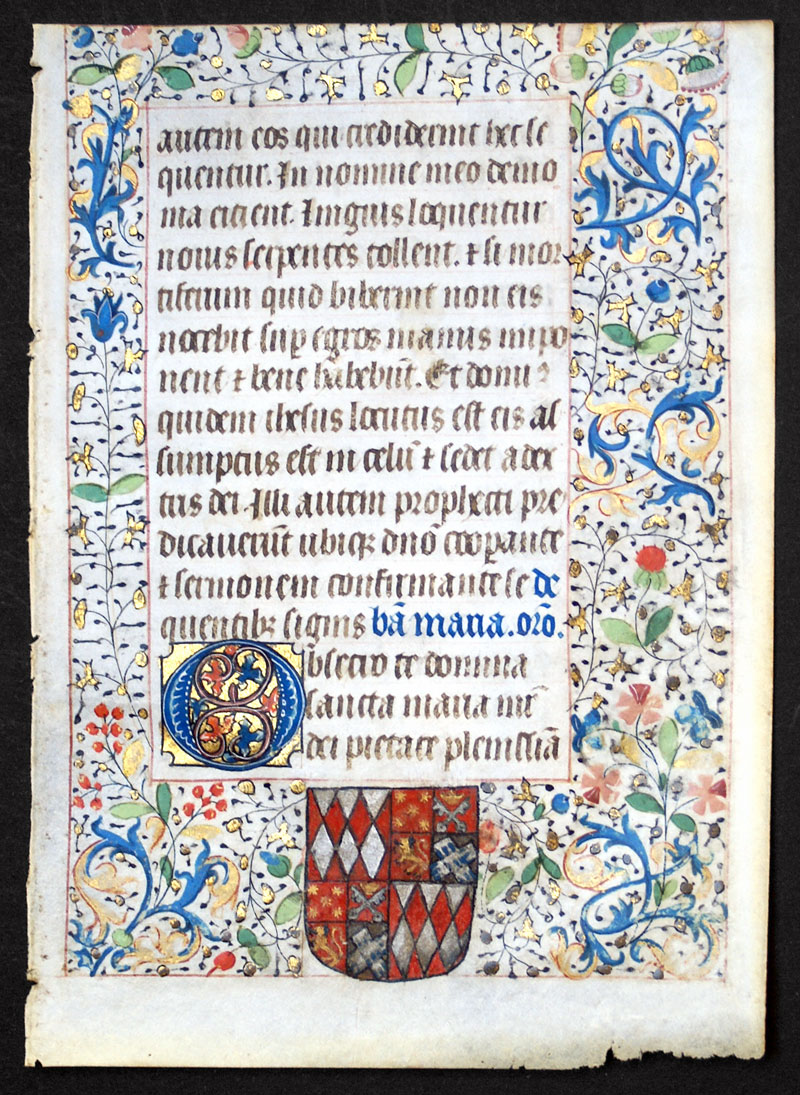 autem eos qui crediderint hec se
quentur. In nomine meo demo
nia eicient. linguis loquentur
nouis serpentes tollent. ⁊ si mor
tiferum quid biberint non eis
nocebit sup̲ egros manus impo
nent ⁊ bene habebūt. Et dominꝰ
quidem ihesus locutus est eis as
sumptus est in celū ⁊ sedet a dex
tris dei. Illi autem prophecti pre
dicauerūt ubiqꝫ dn̄o cooꝑante
⁊ sermonem confirmante se de
quentibꝫ signis bā maria. orō.
Obsecro te domina
sancta maria mr̄
dei pietate plenissīā